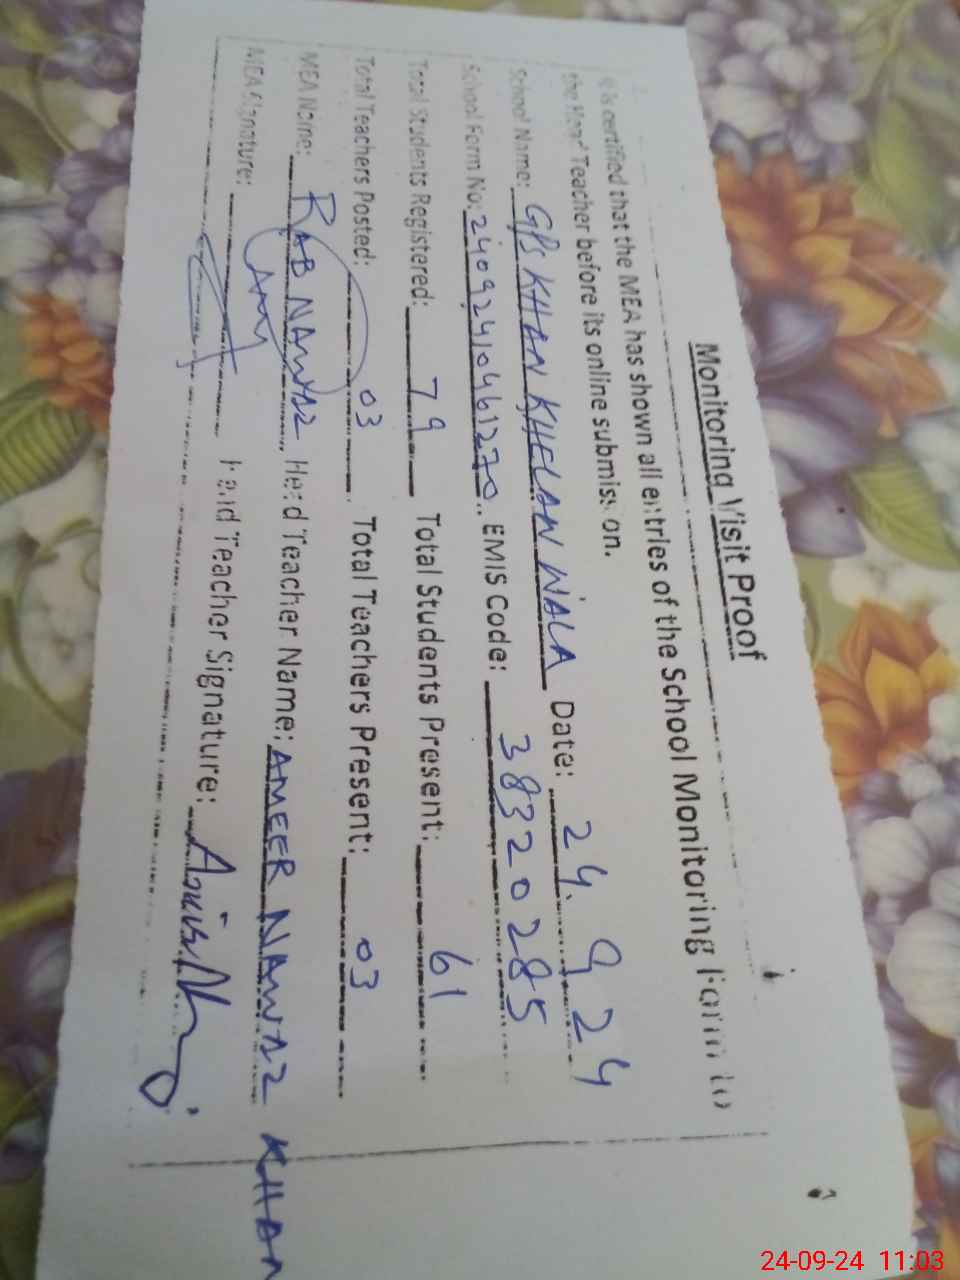 Monitoring Visit Proof
It is certified that the MEA has shown all entries of the School Monitoring Form to
the Head Teacher before its online submission.
School Name: GPS KHAN KHELAN WALA Date: 24. 9 24
School Form No: 24092410461270.. EMIS Code: 38320285
Total Students Registered: 79 Total Students Present: 61
Total Teachers Posted: 03 Total Teachers Present: 03
MEA Name: RAB NAWAZ Head Teacher Name: AMEER NAWAZ KHAN
MEA Signature: Head Teacher Signature:
24-09-24 11:03